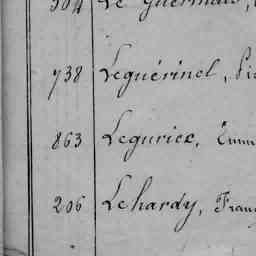 504 Le Guermais,
738 Leguérinel, Pi
863 Legurice, Emm
206 Lehardy, Franç